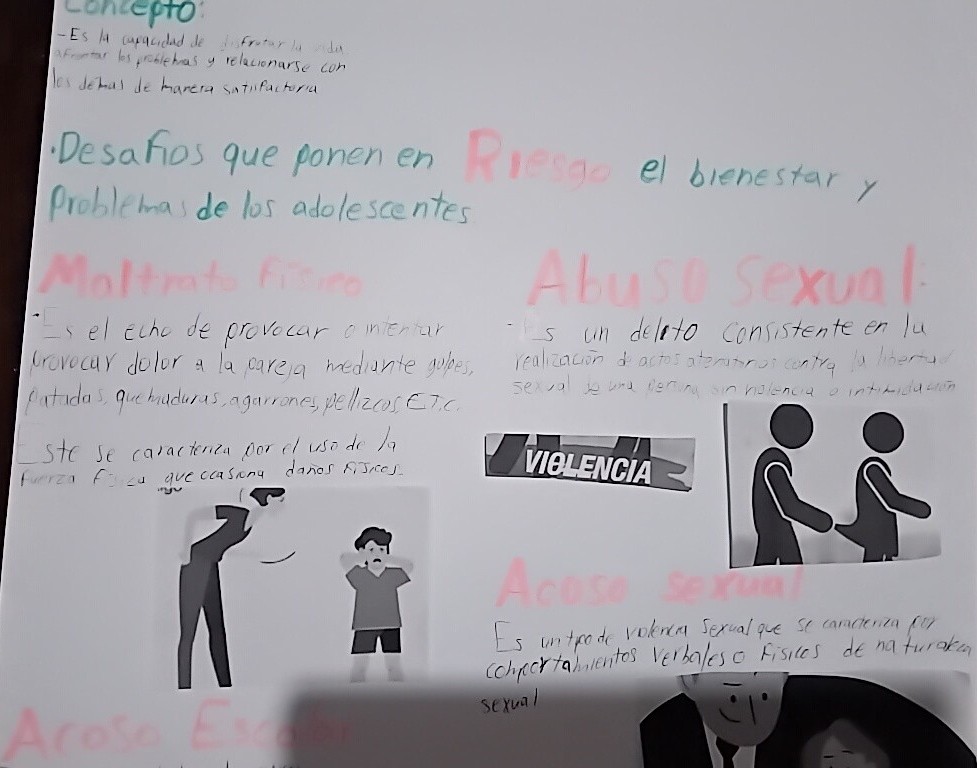 Concepto:
-Es la capacidad de disfrutar la vida
afrontar los problemas y relacionarse con
los demas de manera satisfactoria
·Desafios que ponen en Riesgo el bienestar y
Problemas de los adolescentes
Maltrato Fisico
·Es el echo de provocar o intentar
provocar dolor a la pareja mediante golpes,
patadas, quemaduras, agarrones, pellizcos, E.T.C.
Este se caracteriza por el uso de la
fuerza fisica que ocasiona daños fisicos
Abuso Sexual:
-Es un delito consistente en la
realización de actos contra la libertad
sexual de una persona sin violencia o intimidación
VIOLENCIA
Acoso sexual
Es un tipo de violencia sexual que se caracteriza por
comportamientos verbales o físicos de naturaleza
sexual
Acoso Escolar